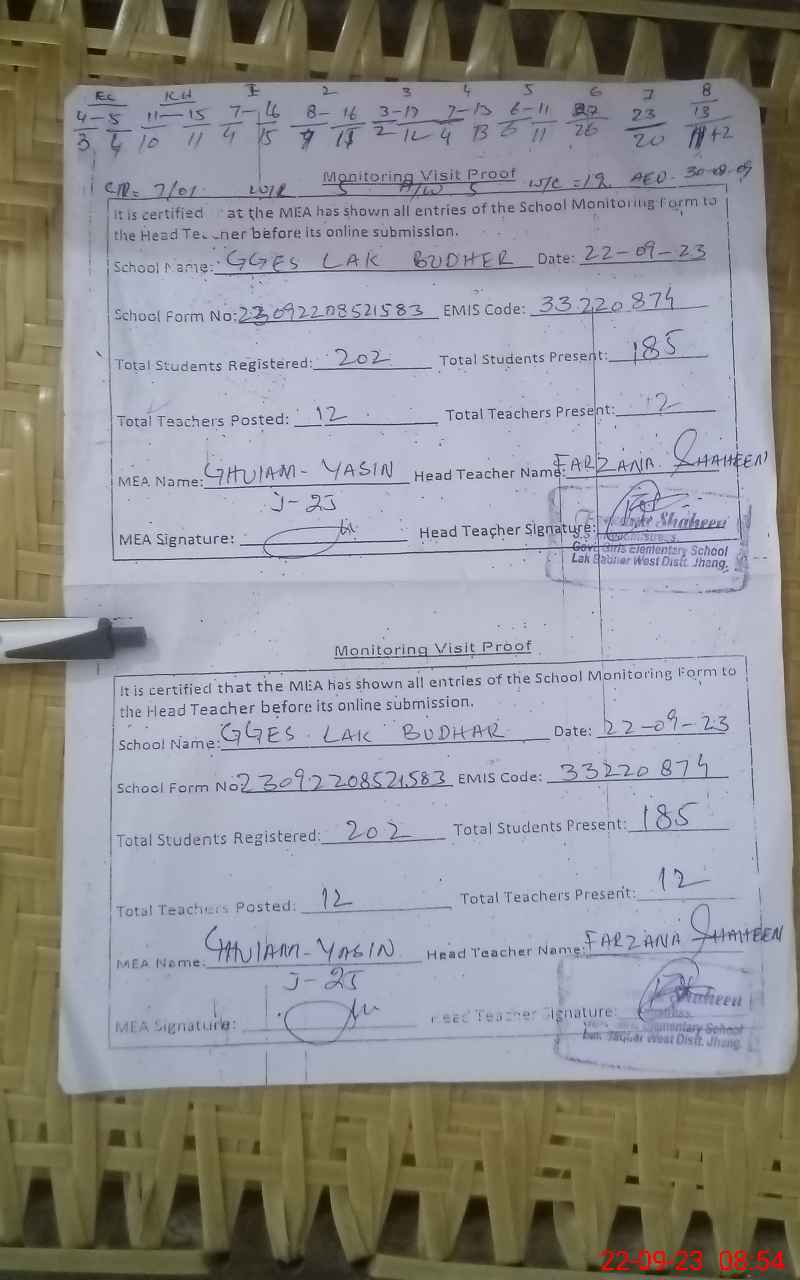 EC KH I 2 3 4 5 6 7 8
4-5 11-15 7-16 8-16 3-17 7-13 6-11 27 23 13
3 4 10 11 4 15 11 2 12 4 13 11 26 20 +2
Monitoring Visit Proof
7/01 5 5 =19 30-08-09
It is certified at the MEA has shown all entries of the School Monitoring Form to
the Head Teacher before its online submission.
School Name: GGES LAK BUDHER Date: 22-09-23
School Form No: 23092208521583 EMIS Code: 33220874
Total Students Registered: 202 Total Students Present: 185
Total Teachers Posted: 12 Total Teachers Present: 12
MEA Name: GHULAM-YASIN Head Teacher Name: FARZANA SHAHEEN
J-25
MEA Signature: Head Teacher Signature:
Shaheen
Govt Girls Elementary School
Lak Badhar West Distt. Jhang.
Monitoring Visit Proof
It is certified that the MEA has shown all entries of the School Monitoring Form to
the Head Teacher before its online submission.
School Name: GGES LAK BUDHAR Date: 22-09-23
School Form No 23092208521583 EMIS Code: 33220874
Total Students Registered: 202 Total Students Present: 185
Total Teachers Posted: 12 Total Teachers Present: 12
MEA Name: GHULAM-YASIN Head Teacher Name: FARZANA SHAHEEN
J-25
MEA Signature: Head Teacher Signature:
Shaheen
Elementary School
West Distt. Jhang.
22-09-23 08:54